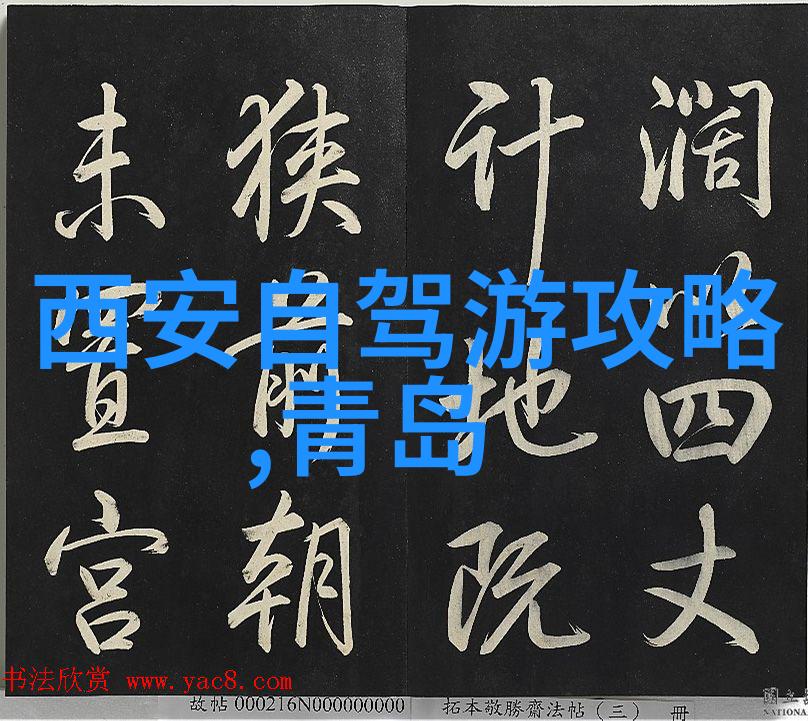 濶四丈
計地既
狹前朝
未置宮
西安自驾游攻略
,青岛
书法欣赏 www.yac8.com
故帖000216N000000000
拓本敬勝齋法帖（三） 冊
國立
NATIONA